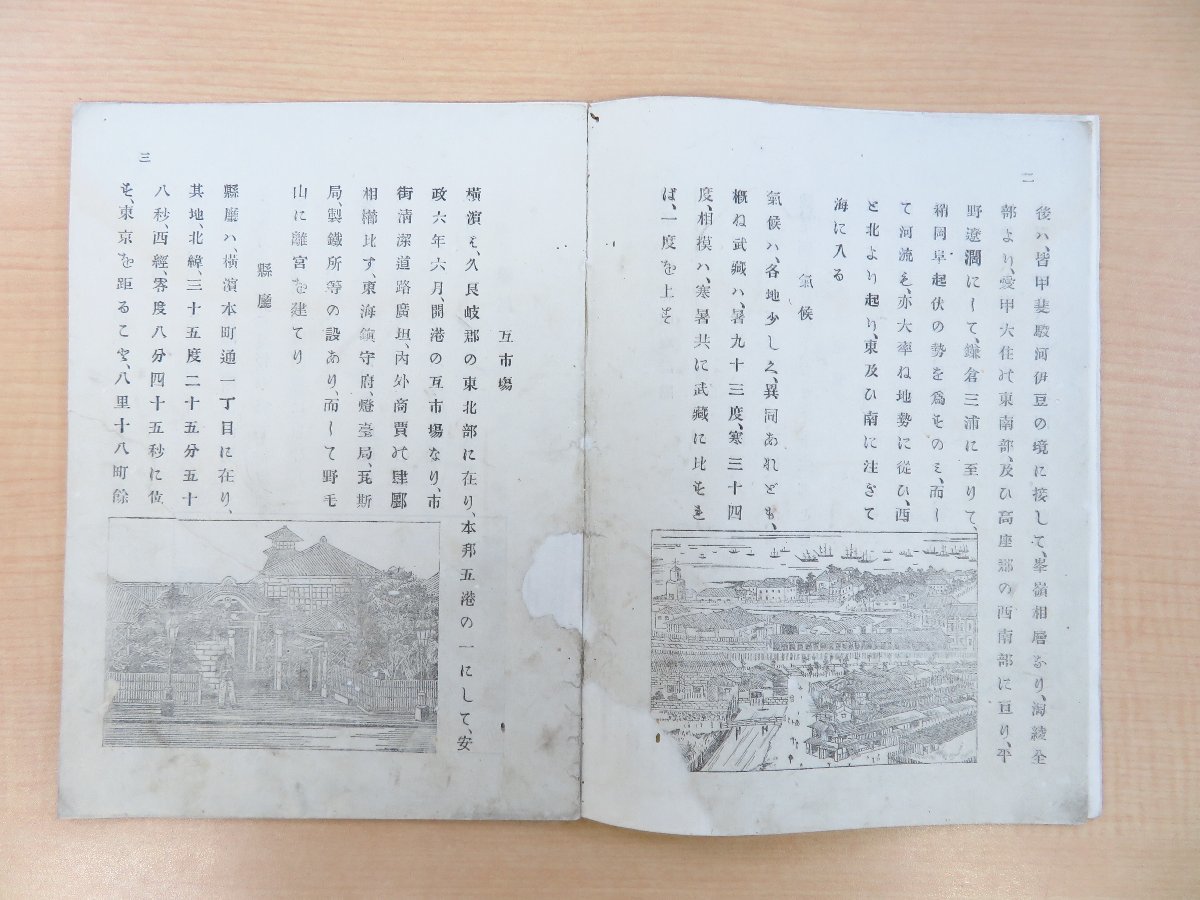 二
後ハ、皆甲斐駿河伊豆の境に接して、峯嶺相層なり、淘綾全
郡より、愛甲大住の東南部、及ひ高座郡の西南部に亘り、平
野遼濶にして、鎌倉三浦に至りて、
稍岡阜起伏の勢を爲すのミ、而し
て河流も、亦大率ね地勢に從ひ、西
と北より起り、東及ひ南に注きて
海に入る
氣候
氣候ハ、各地少しく、異同あれども、
概ね武藏ハ、暑九十三度、寒三十四
度、相摸ハ、寒暑共に武藏に比すれ
ば、一度を上す
互市塲
横濱は、久良岐郡の東北部に在り、本邦五港の一にして、安
政六年六月、開港の互市場なり、市
街清潔道路廣坦、内外商賈の肆郾
相櫛比す、東海鎭守府、燈臺局、瓦斯
局、製鐵所等の設あり、而して野毛
山に離宮を建てり
縣廳
縣廳ハ横濱本町通一丁目に在り、
其地、北緯三十五度二十五分五十
八秒、西經、零度八分四十五秒に位
す、東京を距ること、八里十八町餘
三